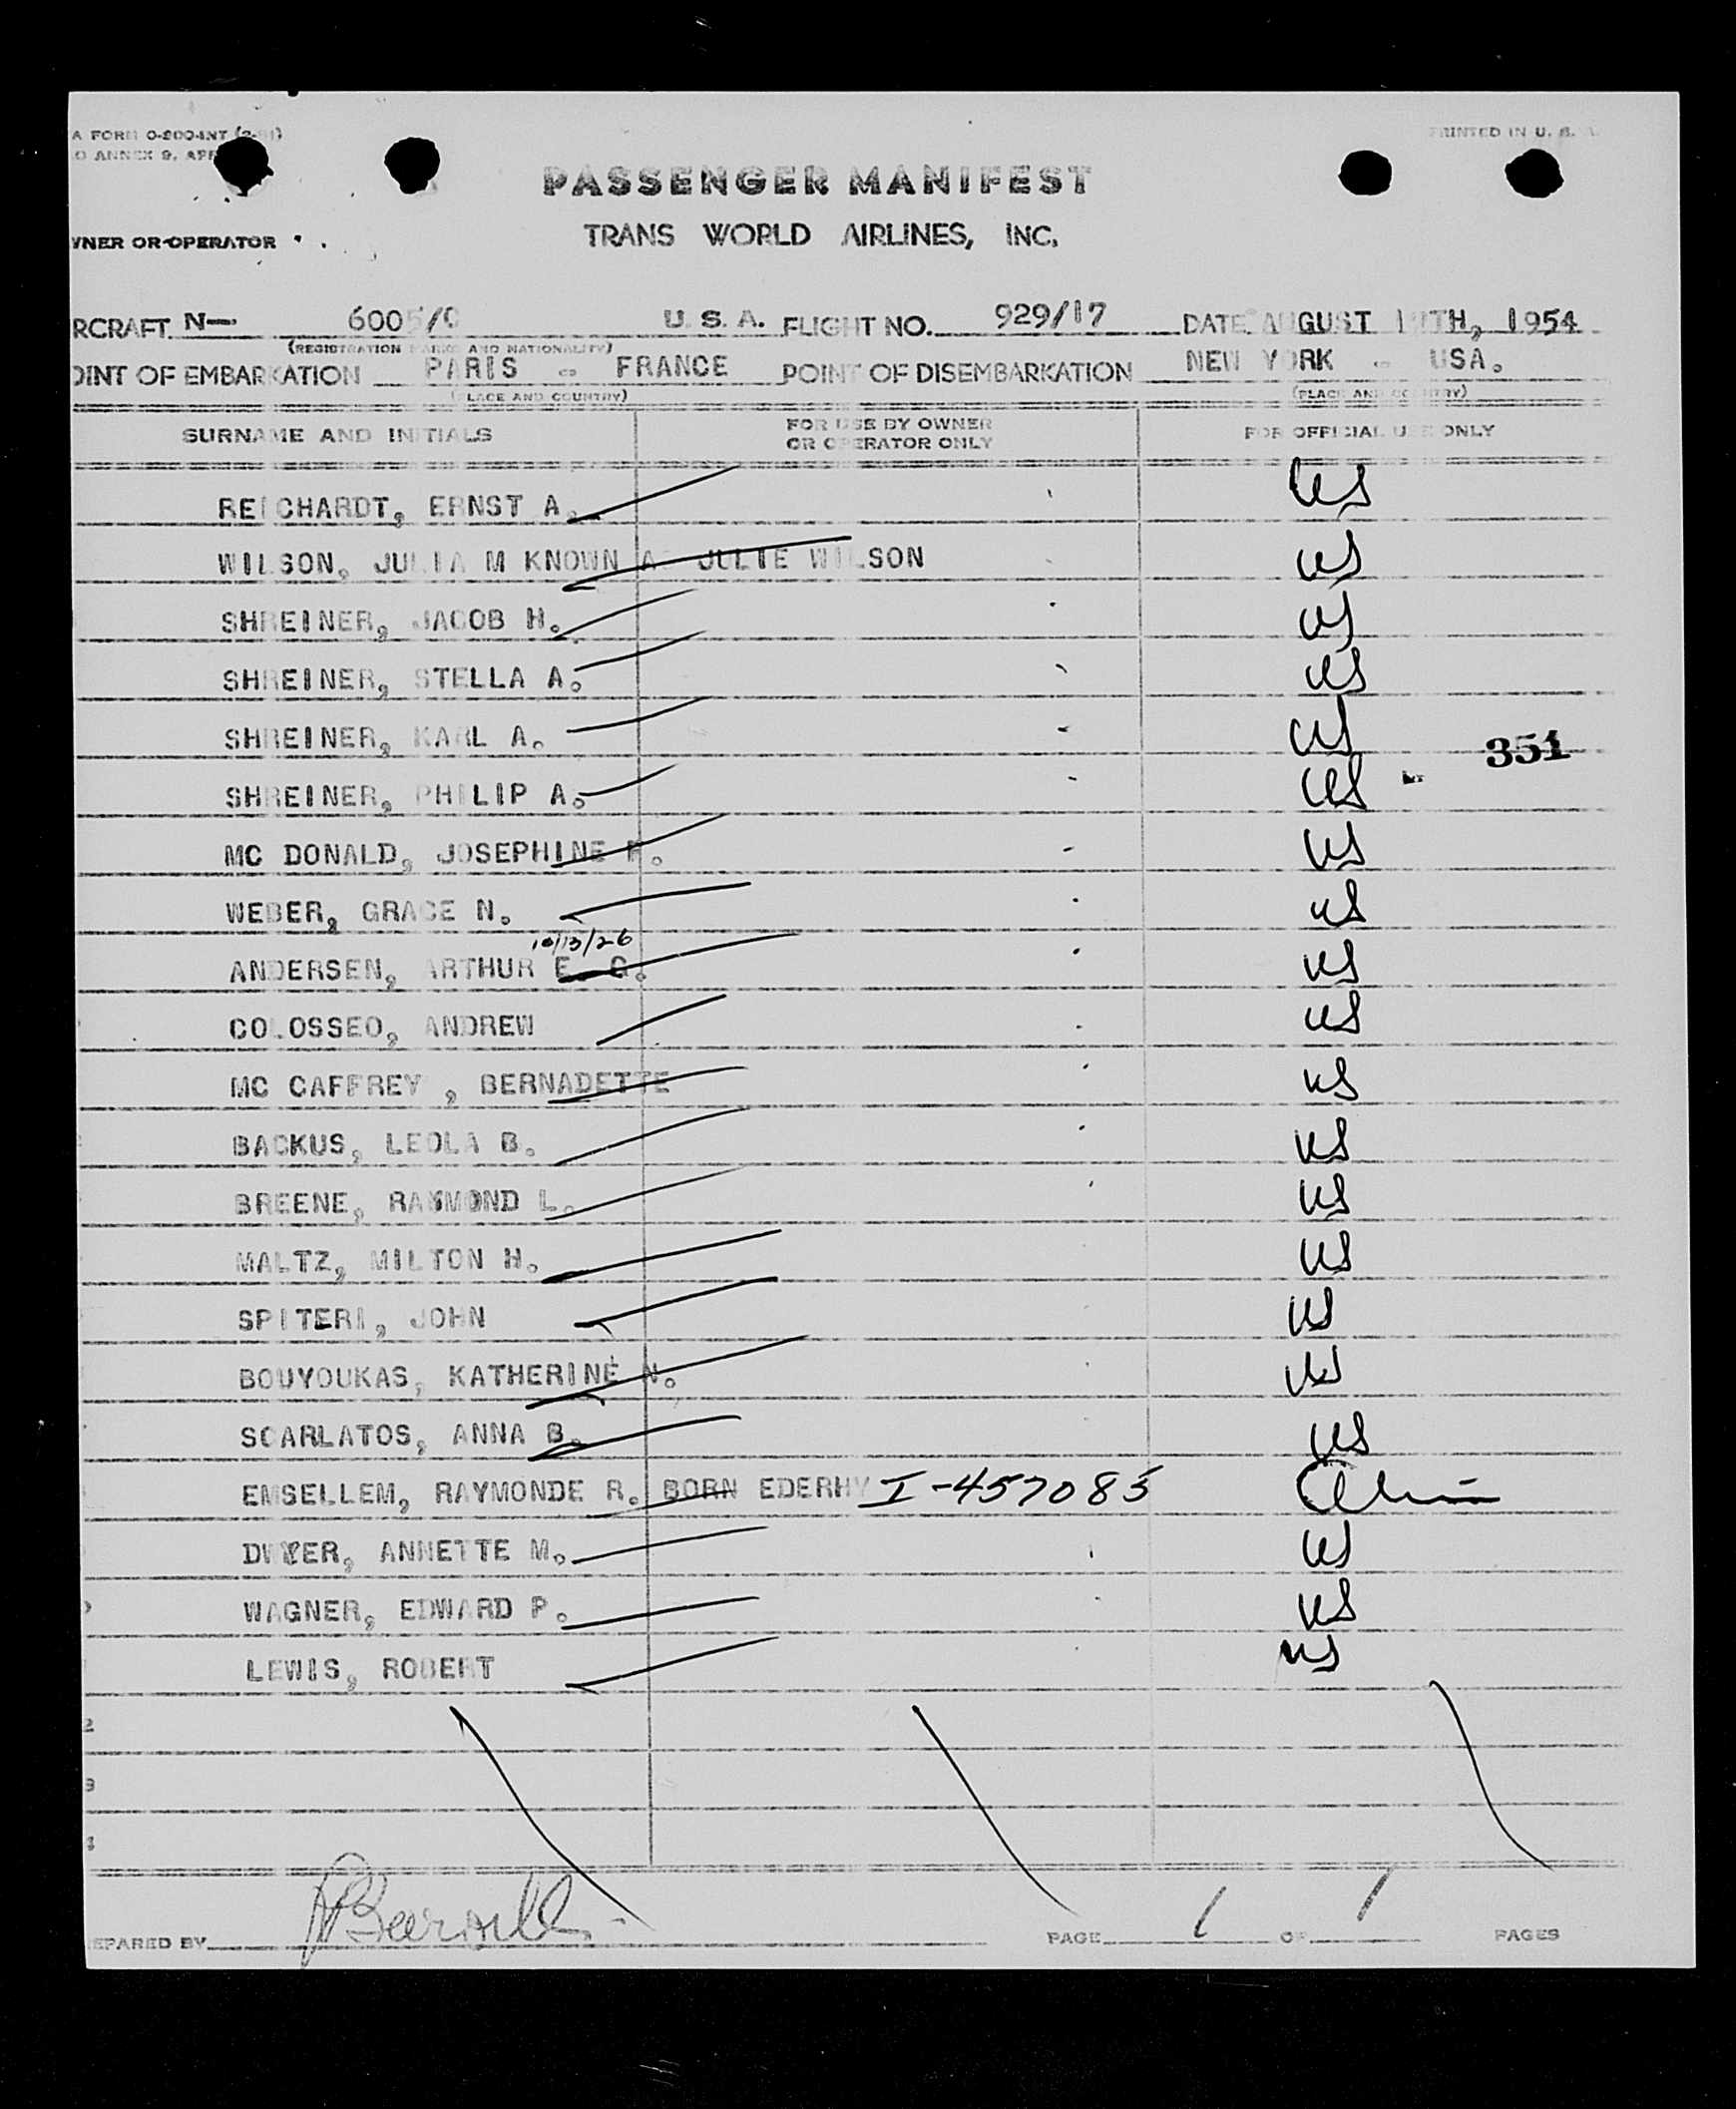 A FORM O-2004NT
O ANNEX 9, APP
PRINTED IN U. S.
PASSENGER MANIFEST
WNER OR OPERATOR
TRANS WORLD AIRLINES, INC.
RCRAFT N— 600 U. S. A. FLIGHT NO. 929/17 DATE AUGUST TH, 1954
(REGISTRATION MARKS AND NATIONALITY)
OINT OF EMBARKATION PARIS - FRANCE POINT OF DISEMBARKATION NEW YORK - USA.
(PLACE AND COUNTRY) (PLACE AND COUNTRY)
SURNAME AND INITIALS FOR USE BY OWNER OR OPERATOR ONLY FOR OFFICIAL USE ONLY
REICHARDT, ERNST A. US
WILSON, JULIA M KNOWN AS JULIE WILSON US
SHREINER, JACOB H. US
SHREINER, STELLA A. US
SHREINER, KARL A. US
351
SHREINER, PHILIP A. US
MC DONALD, JOSEPHINE US
WEBER, GRACE N. US
10/13/26
ANDERSEN, ARTHUR E. G. US
COLOSSEO, ANDREW US
MC CAFFREY , BERNADETTE US
BACKUS, LEOLA B. US
BREENE, RAYMOND L. US
MALTZ, MILTON H. US
SPITERI, JOHN US
BOUYOUKAS, KATHERINE N. US
SCARLATOS, ANNA B. US
EMSELLEM, RAYMONDE R. BORN EDERHY I-457085
DWYER, ANNETTE M. US
WAGNER, EDWARD P. US
LEWIS, ROBERT US
2
3
4
EPARED BY PAGE 1 OF 1 PAGES